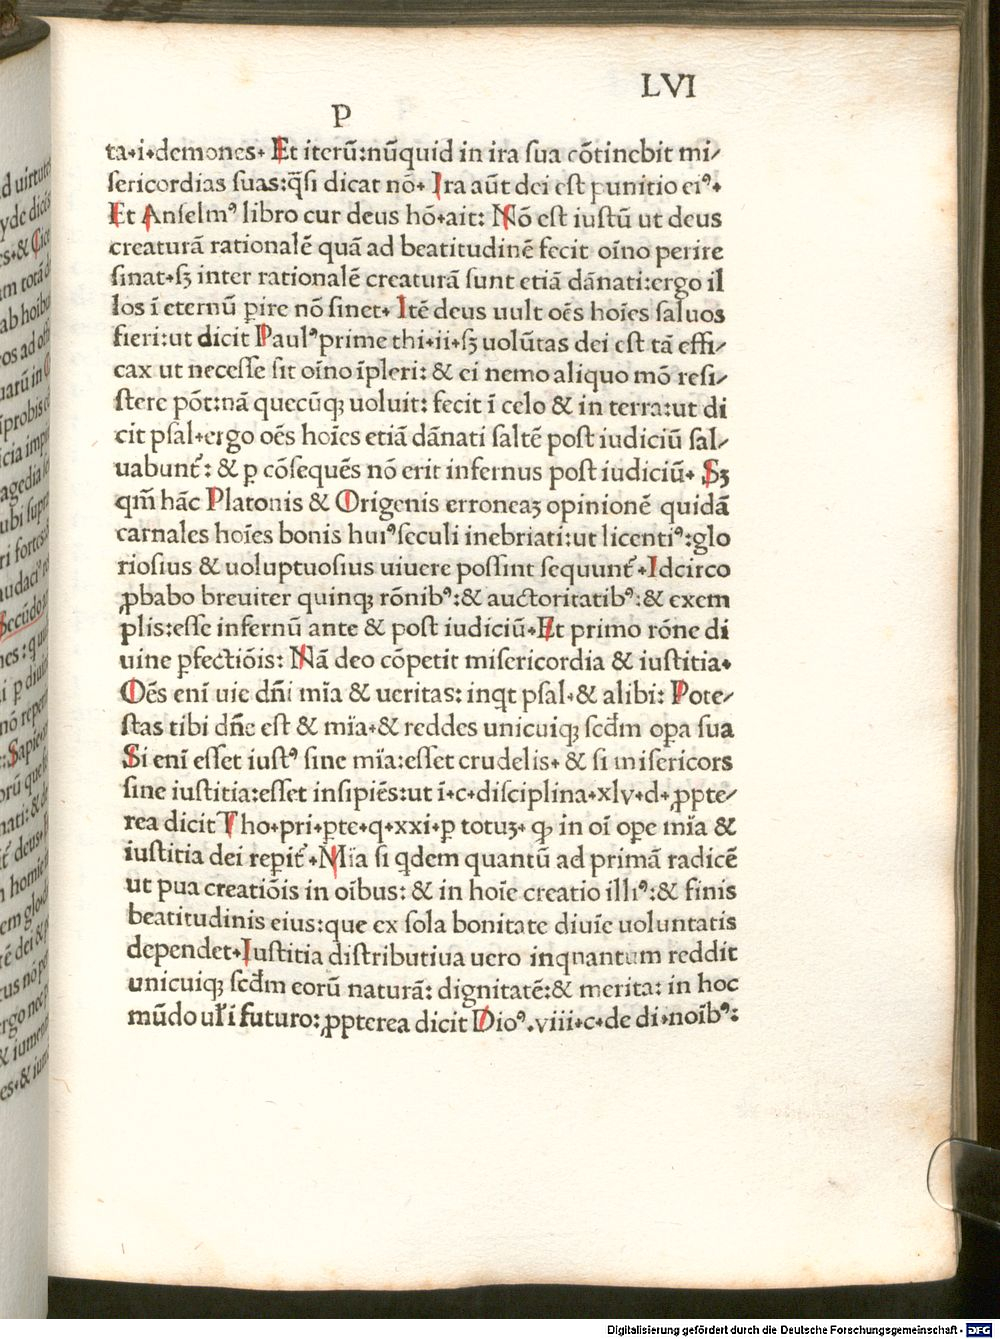 LVI
P
ta·i·demones· Et iterū:nūquid in ira sua cōtinebit mi⸗
sericordias suas:q̄si dicat nō· Ira aūt dei est punitio eiꝰ·
Et Anselmꝰ libro cur deus hō·ait: Nō est iustū ut deus
creaturā rationalē quā ad beatitudinē fecit oīno perire
sinat·sꝫ inter rationalē creaturā sunt etiā dānati:ergo il
los ī eternū ꝑire nō sinet· Itē deus uult oēs hoīes saluos
fieri:ut dicit Paulꝰ prime thi·ii·sꝫ uolūtas dei est tā effi⸗
cax ut necesse sit oīno īpleri: & ei nemo aliquo mō resi⸗
stere pōt:nā quecūqꝫ uoluit: fecit ī celo & in terra:ut di
cit psal·ergo oēs hoīes etiā dānati saltē post iudiciū sal⸗
uabunt᷑: & ꝑ cōsequēs nō erit infernus post iudiciū· Sꝫ
qm̄ hāc Platonis & Origenis erroneaꝫ opinionē quidā
carnales hoīes bonis huiꝰseculi inebriati:ut licentiꝰ:glo
riosius & uoluptuosius uiuere possint sequunt᷑·Idcirco
ꝓbabo breuiter quinqꝫ rōnibꝰ:& auctoritatibꝰ:& exem
plis:esse infernū ante & post iudiciū·Et primo rōne di
uine ꝑfectiōis: Nā deo cōpetit misericordia & iustitia·
Oēs enī uie dn̄i mīa & ueritas: inqt psal·& alibi: Pote⸗
stas tibi dn̄e est & mīa·& reddes unicuiqꝫ scd̄m oꝑa sua
Si enī esset iustꝰ sine mīa:esset crudelis· & si misericors
sine iustitia:esset insipiēs:ut ī·c·disciplina·xlv·d·ꝓpte⸗
rea dicit Tho·pri·ꝑte·q·xxi·ꝑ totuꝫ· ꝙ in oī oꝑe mīa &
iustitia dei reꝑit᷑·Mīa si qdem quantū ad primā radicē
ut pua creatiōis in oībus: & in hoīe creatio illiꝰ:& finis
beatitudinis eius:que ex sola bonitate diuīe uoluntatis
dependet·Iustitia distributiua uero inquantum reddit
unicuiqꝫ scd̄m eorū naturā: dignitatē:& merita: in hoc
mūdo ul̄i futuro:ꝓpterea dicit Dioꝰ·viii·c·de di·noībꝰ:
Digitalisierung gefördert durch die Deutsche Forschungsgemeinschaft - DFG